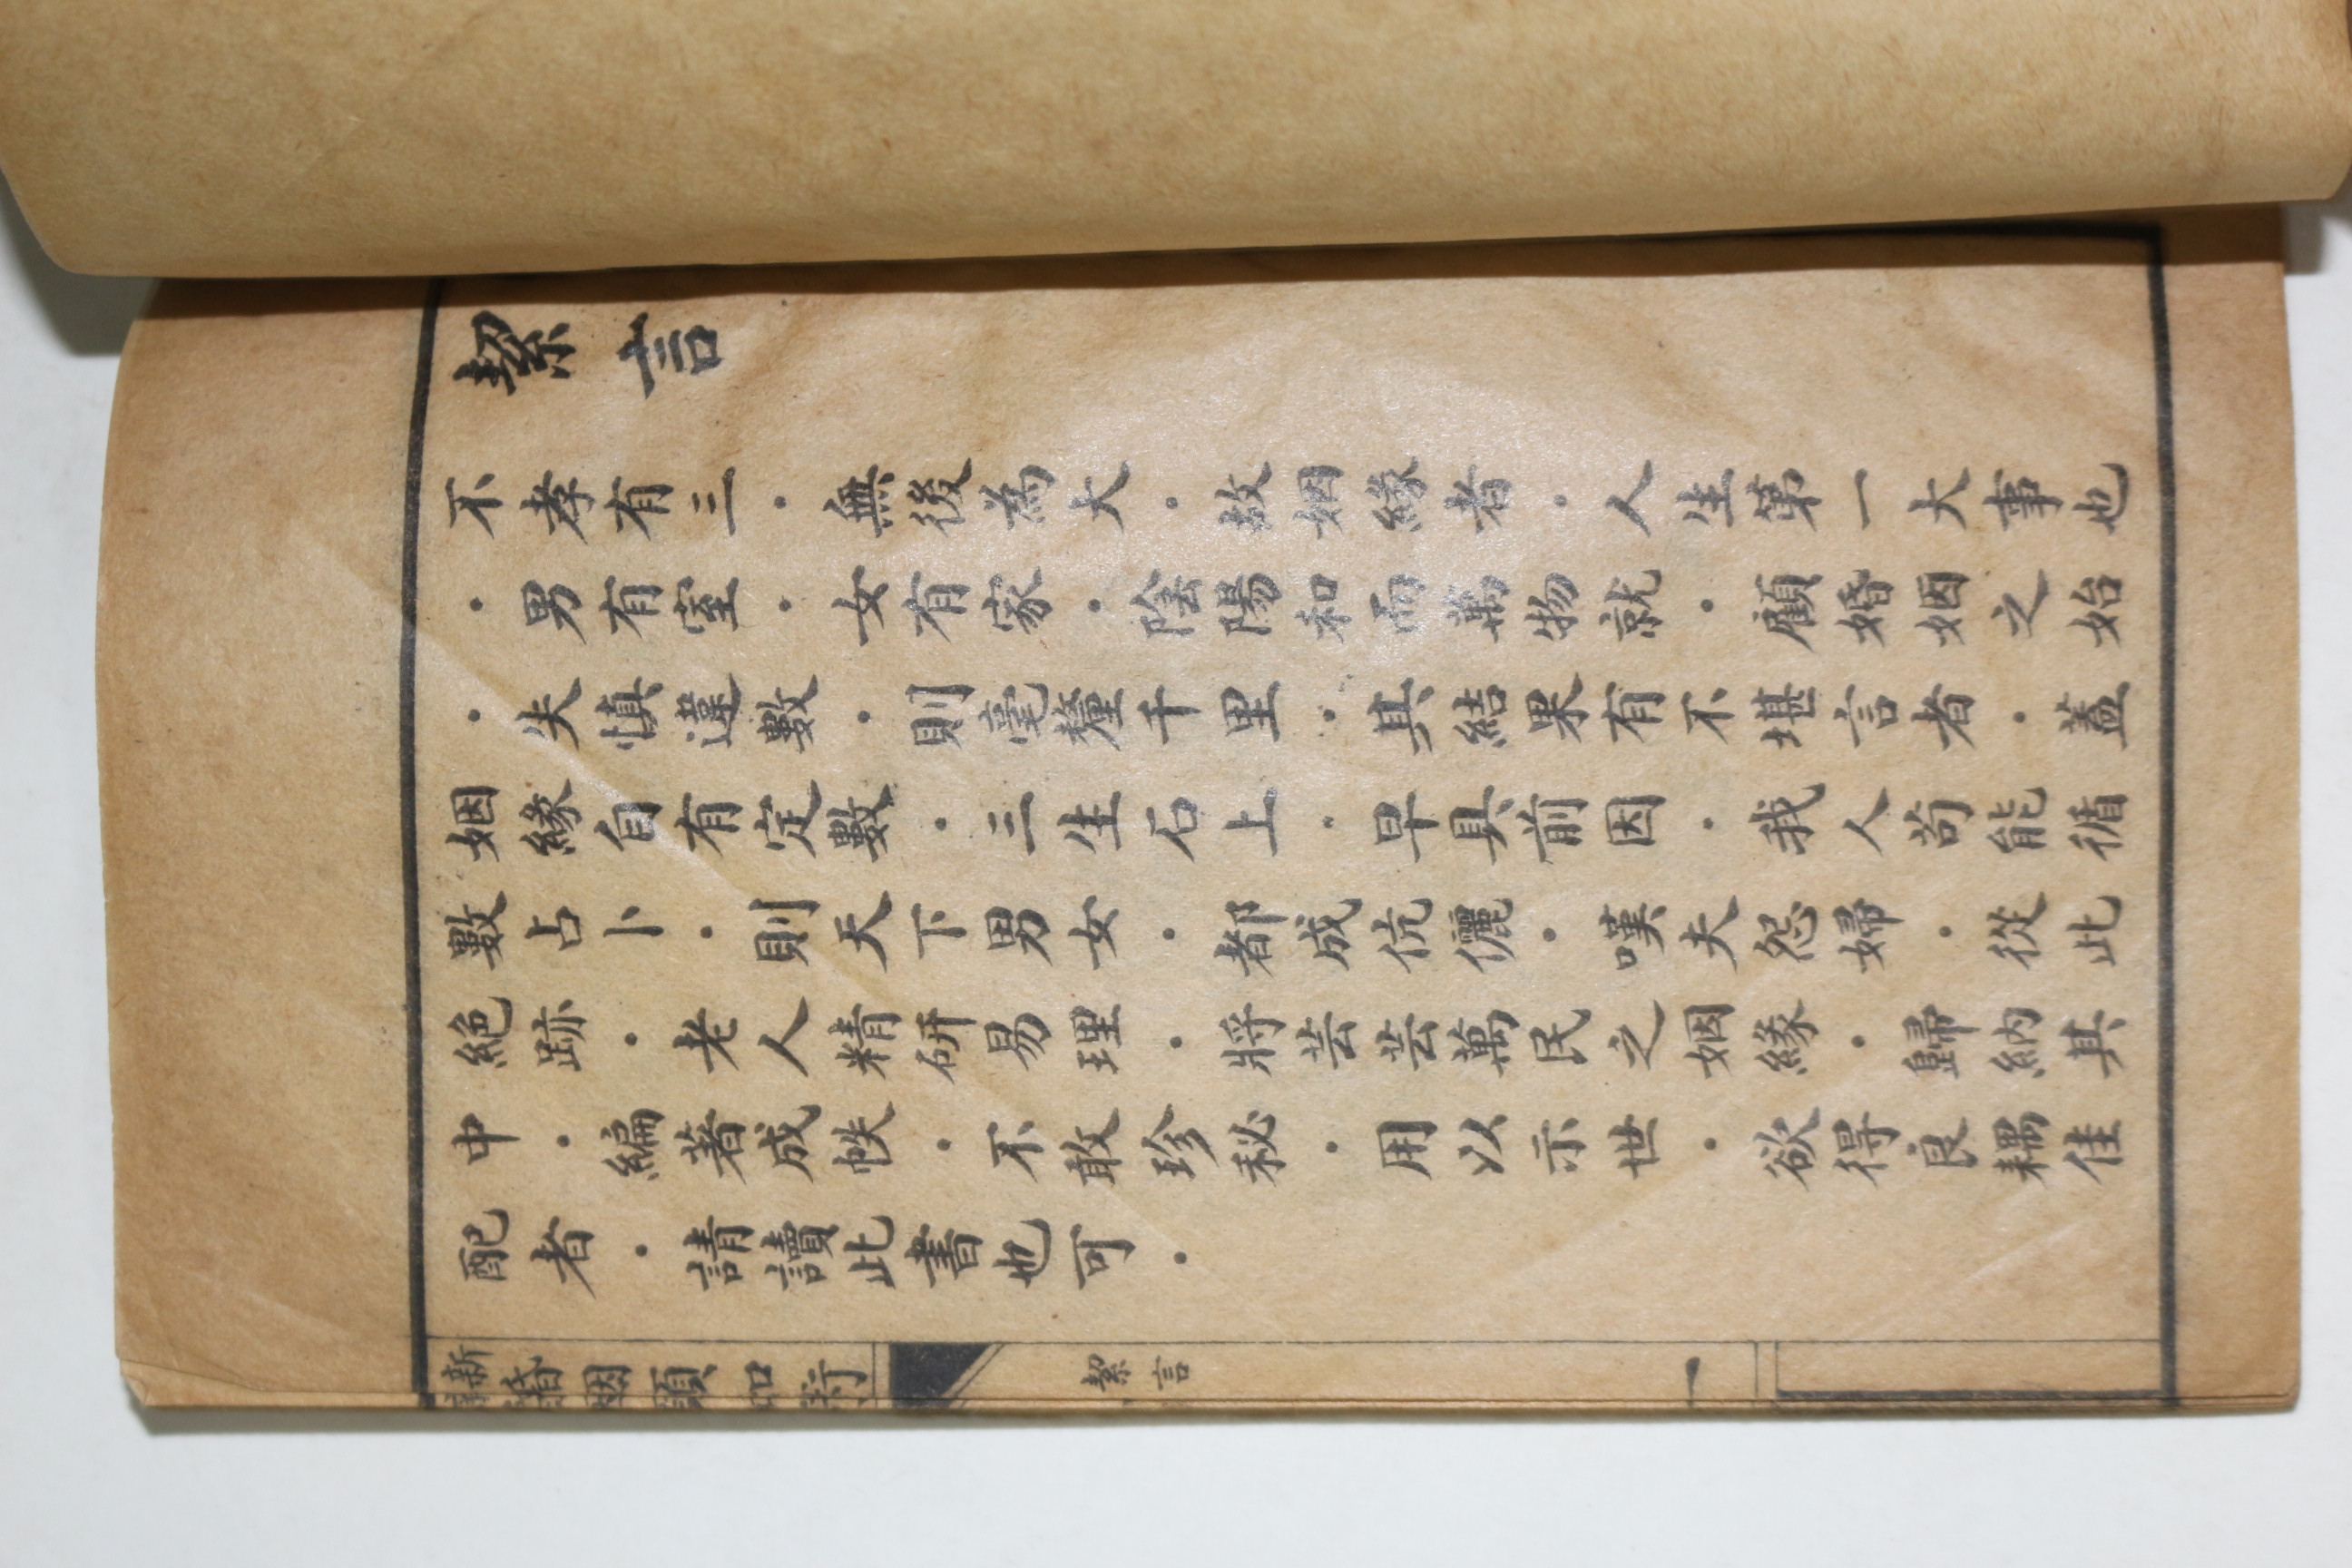 絜言
不孝有三·無後為大·故姻緣者·人生第一大事也
·男有室·女有家·陰陽和而萬物就·顧婚姻之始
·失慎違數·則毫釐千里·其結果有不堪言者·蓋
姻緣自有定數·三生石上·早具前因·我人苟能循
數占卜·則天下男女·都成伉儷·嘆夫怨婦·從此
絕跡·老人精研易理·將芸芸萬民之姻緣·歸納其
中·編著成帙·不敢珍秘·用以示世·欲得良耦佳
配者·請讀此書也可·
新婚姻預知術
絜言
一